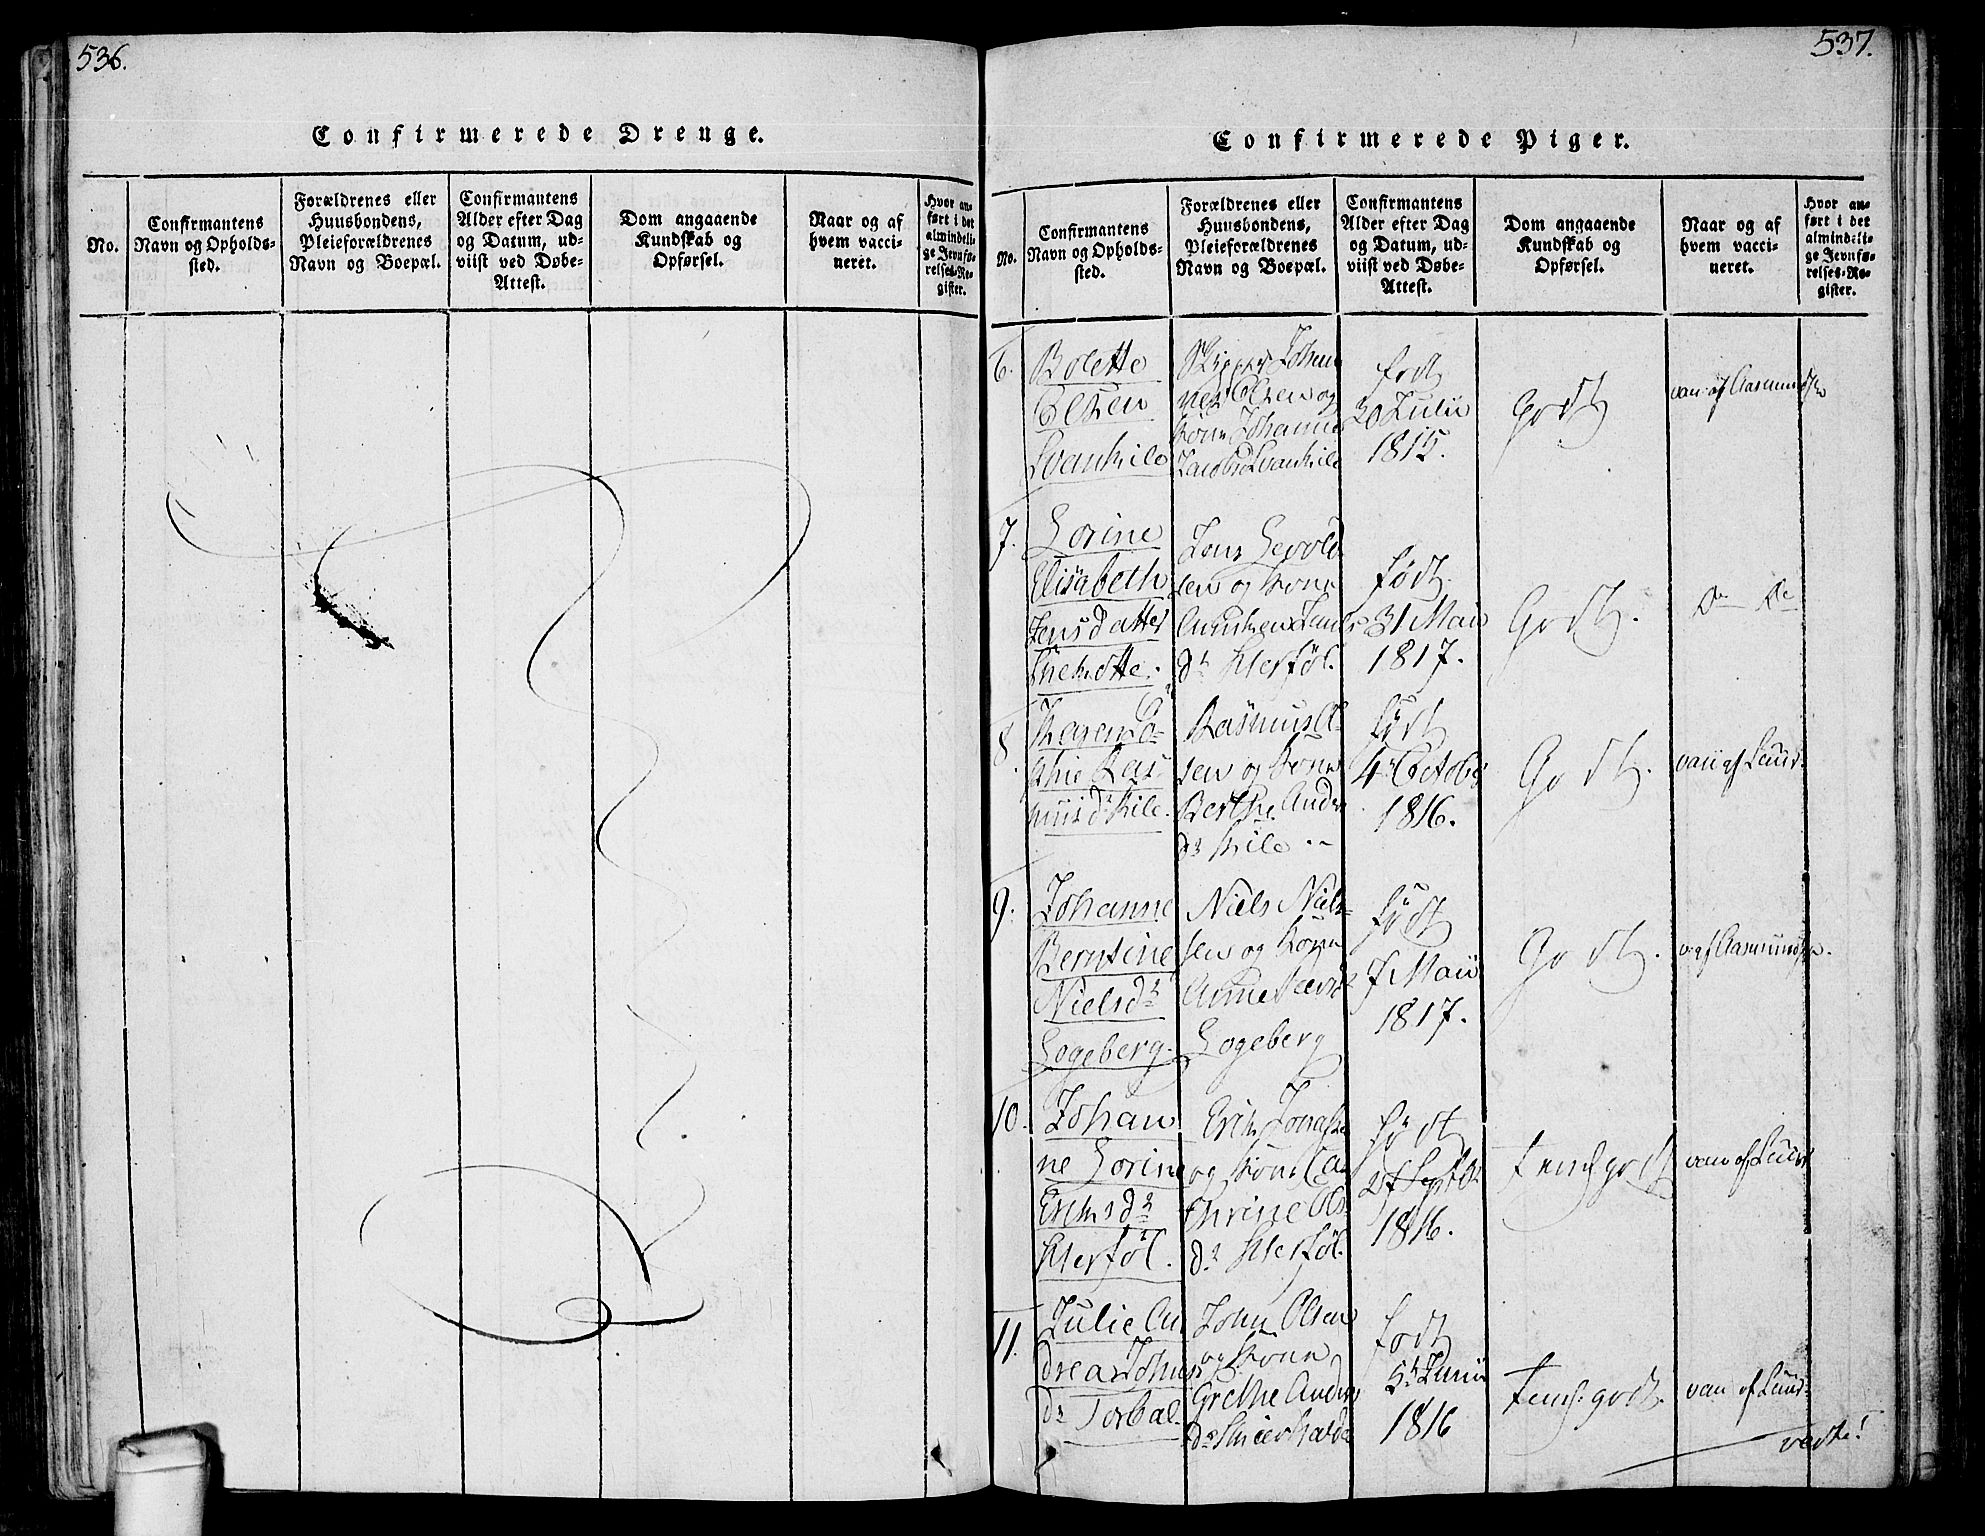 536.
Confirmerede Drenge.
No.
Confirmantens
Navn og Opholds-
sted.
Forældrenes eller
Huusbondens,
Pleieforældrenes
Navn og Boepæl.
Confirmantens
Alder efter Dag
og Datum, ud-
viist ved Døbe-
Attest.
Dom angaaende
Kundskab og
Opførsel.
Naar og af
hvem vacci-
neret.
Hvor an-
ført i det
almindeli-
ge Jevnfø-
relses-Re-
gister.
537.
Confirmerede Piger.
No.
Confirmantens
Navn og Opholds-
sted.
Forældrenes eller
Huusbondens,
Pleieforældrenes
Navn og Boepæl.
Confirmantens
Alder efter Dag
og Datum, ud-
viist ved Døbe-
Attest.
Dom angaaende
Kundskab og
Opførsel.
Naar og af
hvem vacci-
neret.
Hvor an-
ført i det
almindeli-
ge Jevnfø-
relses-Re-
gister.
6.
Bolette
Olsen
Svankile
Johan
nes Olsen og
Kone Johanne
Svankile
født
20 Julii
1815.
Godt
van af Aasmundsen
7.
Sorine
Elisabeth
Jensdatter
Jens
sen og Kone
dr Kierføl.
født
31 Maii
1817.
Godt.
Do Do
8.
Ras
musdr Kile.
Rasmus Ol
sen og Kone
Berthe Anders
dr Kile
født
4 Octobr
1816.
Godt.
van af Lund
9.
Johanne
Berntine
Nielsdr
Logeberg.
Niels Niel-
sen og Kone
Anne
Logeberg
født
7 Maii
1817.
Godt.
v. af Aasmundsen.
10.
Johan
ne Sorine
Eriksdr
Kierføl.
Erik
og Kone Ca
thrine Ols
dr Kierføl.
født
Septbr
1816.
teml godt
van af Lund
11.
Julie An
drea Johns
dr Torbal-
John Olsen
og Kone
Grethe Anders
født
5 Junii
1816
teml. godt.
van af Lund-
verte!